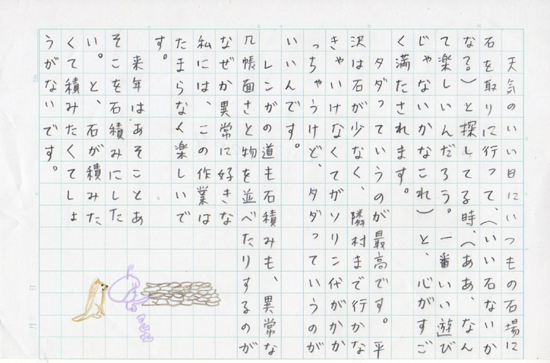 天気のいい日にいつもの石場に
石を取りに行って、(いい石ないか
なる)と探してる時、(ああ、なん
て楽しいんだろう。一番いい遊び
じゃないかなこれ)と、心がすご
く満たされます。
タダっていうのが最高です。平
沢は石が少なく、隣村まで行かな
きゃいけなくてガソリン代がかか
っちゃうけど、タダっていうのが
いいんです。
レンガの道も石積みも、異常な
几帳面さと物を並べたりするのが
なぜか異常に好きな
私には、この作業は
たまらなく楽しいで
す。
来年はあそことあ
そこを石積みにした
い。と、石が積みた
くて積みたくてしょ
うがないです。